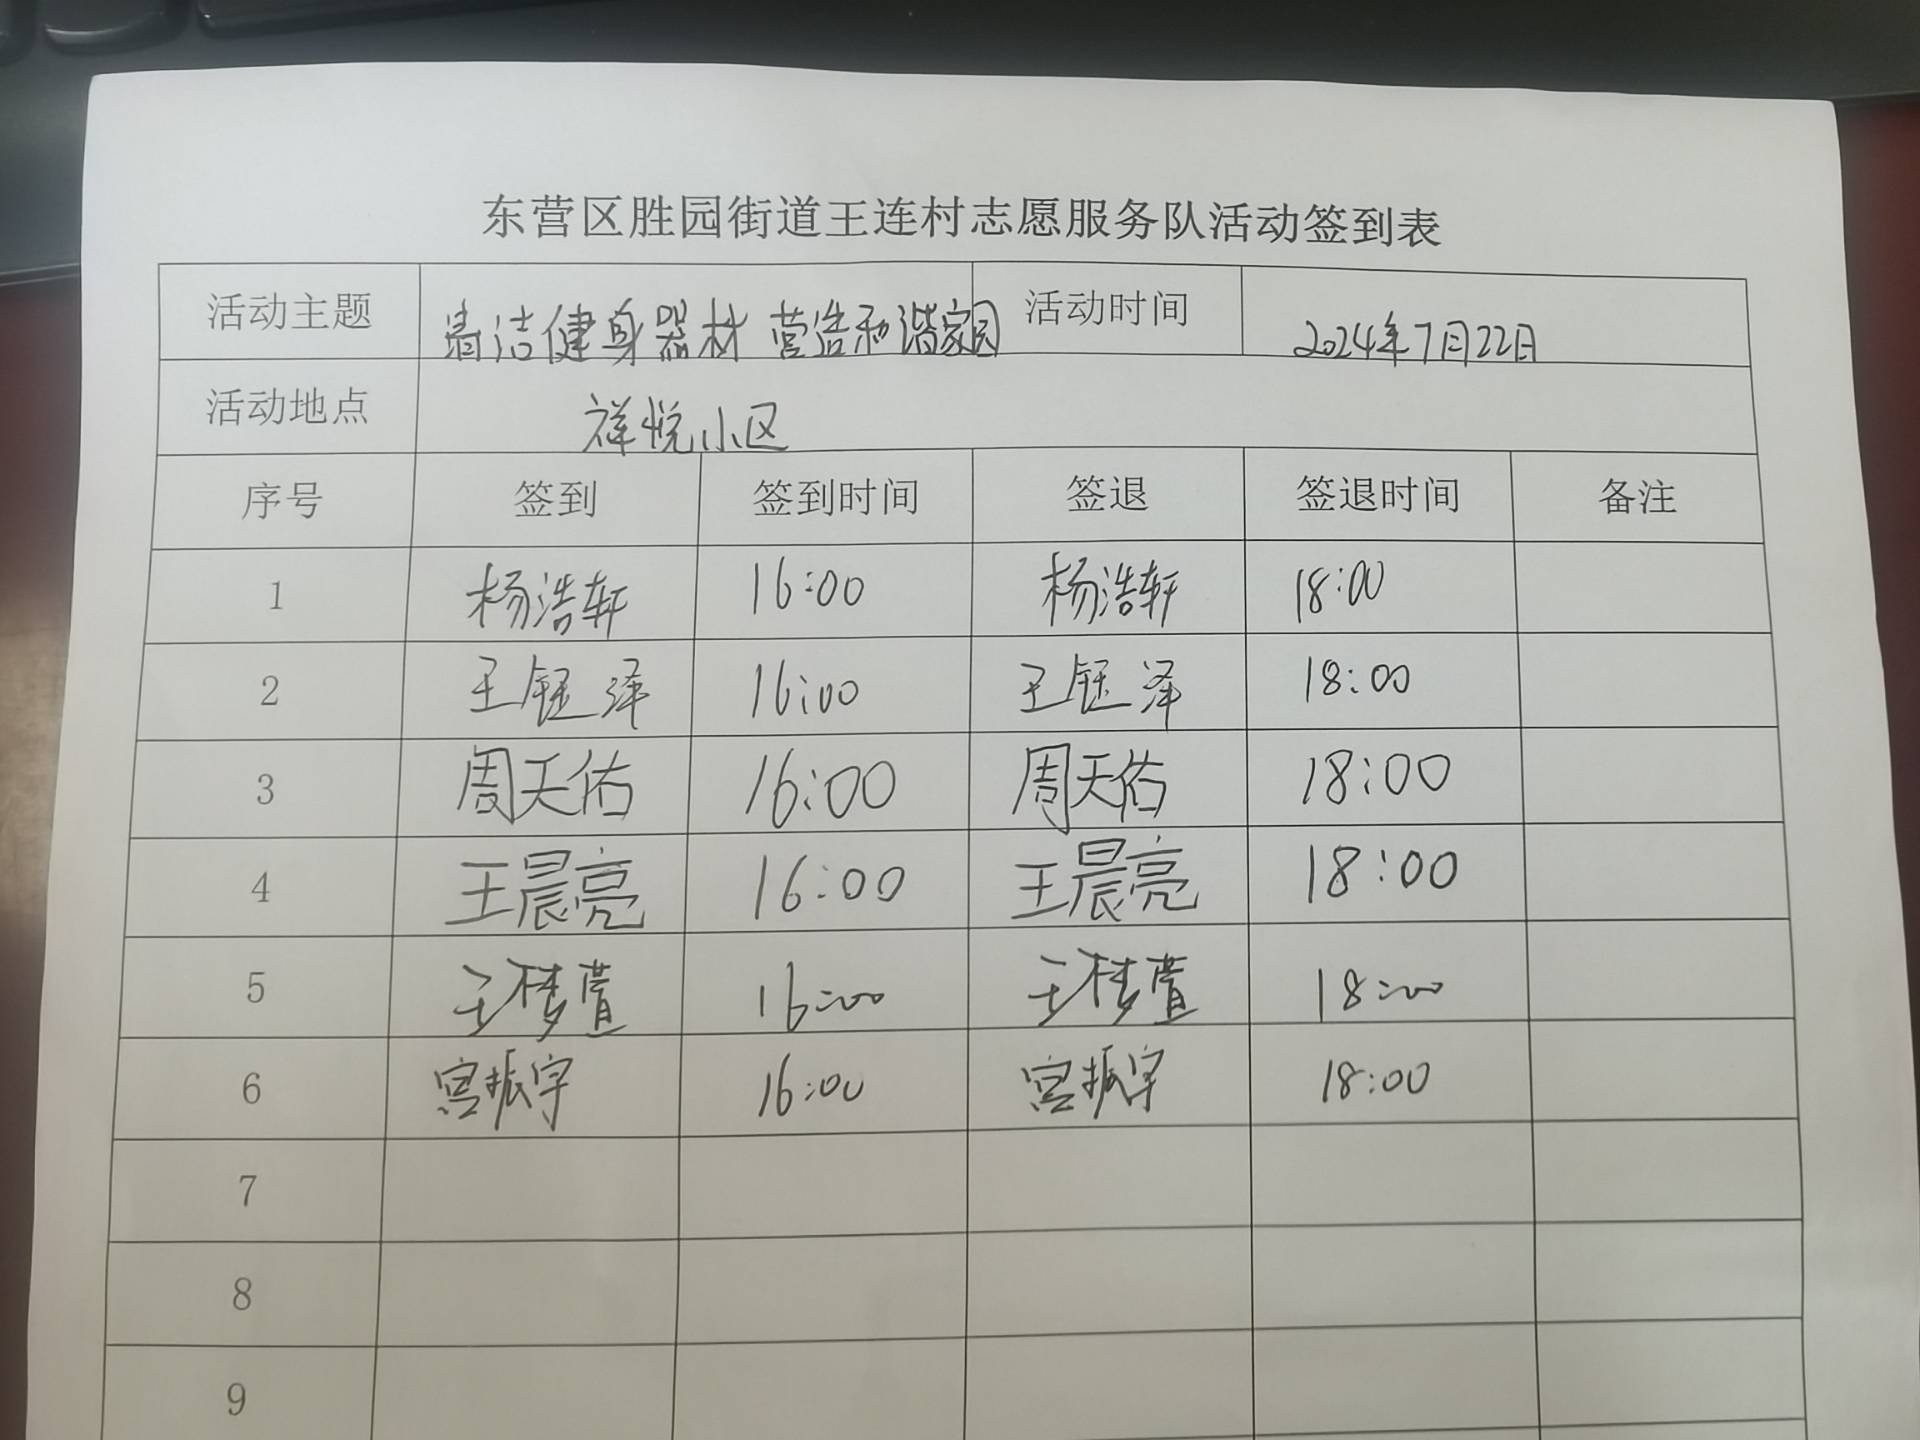 东营区胜园街道王连村志愿服务队活动签到表
活动主题 清洁健身器材 营造和谐家园 活动时间 2024年7月22日
活动地点 祥悦小区
序号 签到 签到时间 签退 签退时间 备注
1 杨浩轩 16:00 杨浩轩 18:00
2 王钰泽 16:00 王钰泽 18:00
3 周天佑 16:00 周天佑 18:00
4 王晨亮 16:00 王晨亮 18:00
5 王梦萱 16:00 王梦萱 18:00
6 宫振宇 16:00 宫振宇 18:00
7
8
9